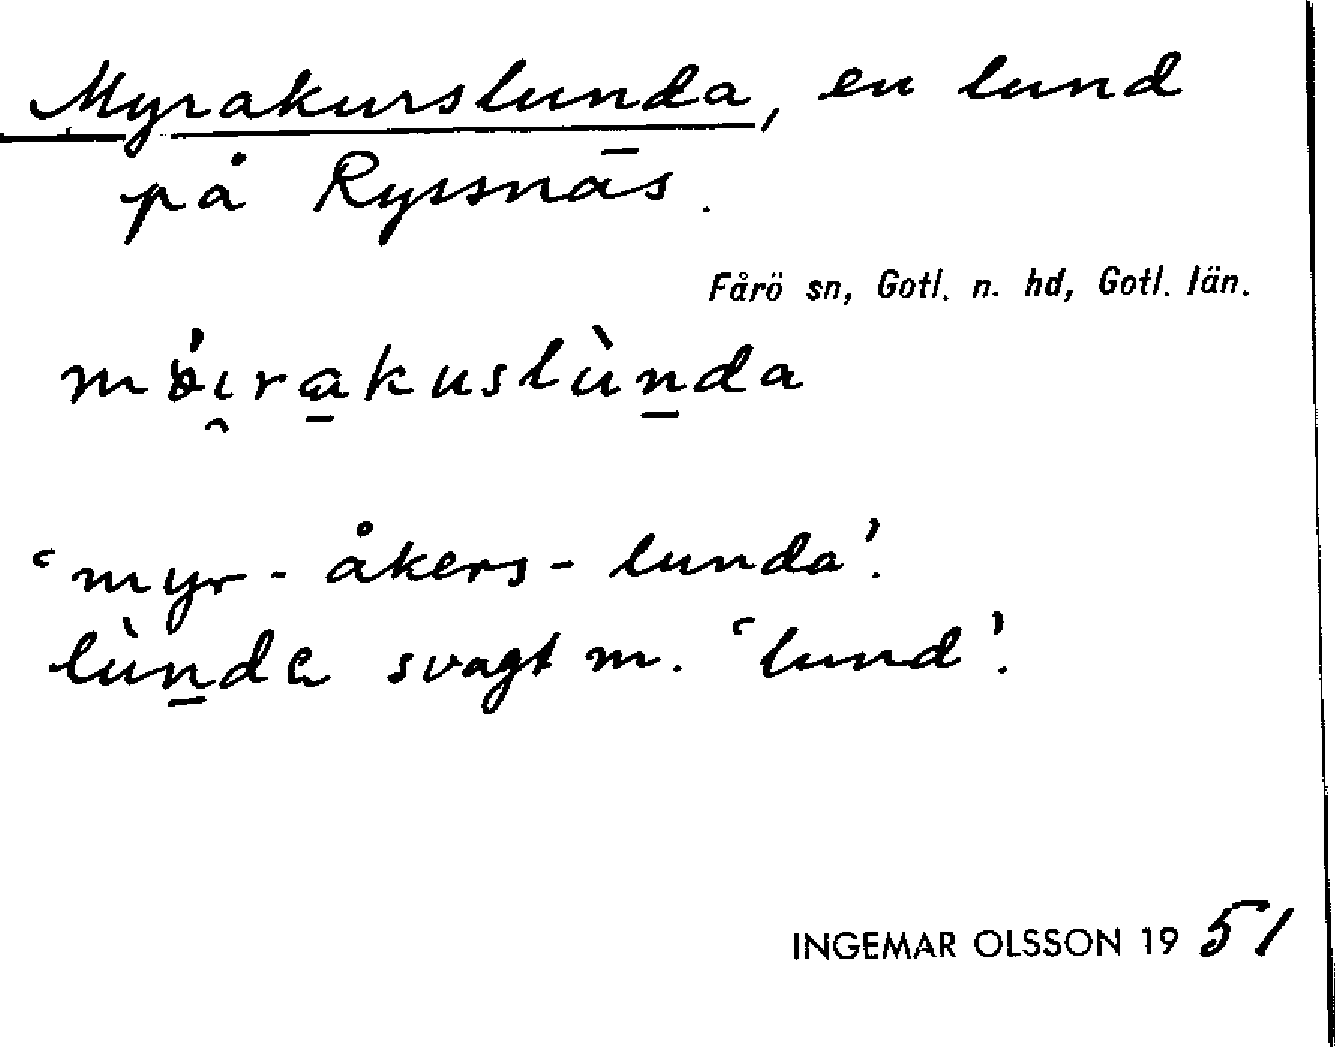 Myrakurslunda, en lund
på Ryssnäs.
Fårö sn, Gotl. n. hd, Gotl. län.
mɵ́i̯ra̱kuslùn̠da
‘myr-åkers-lunda’.
lùn̠da svagt m. ‘lund’.
INGEMAR OLSSON 1951